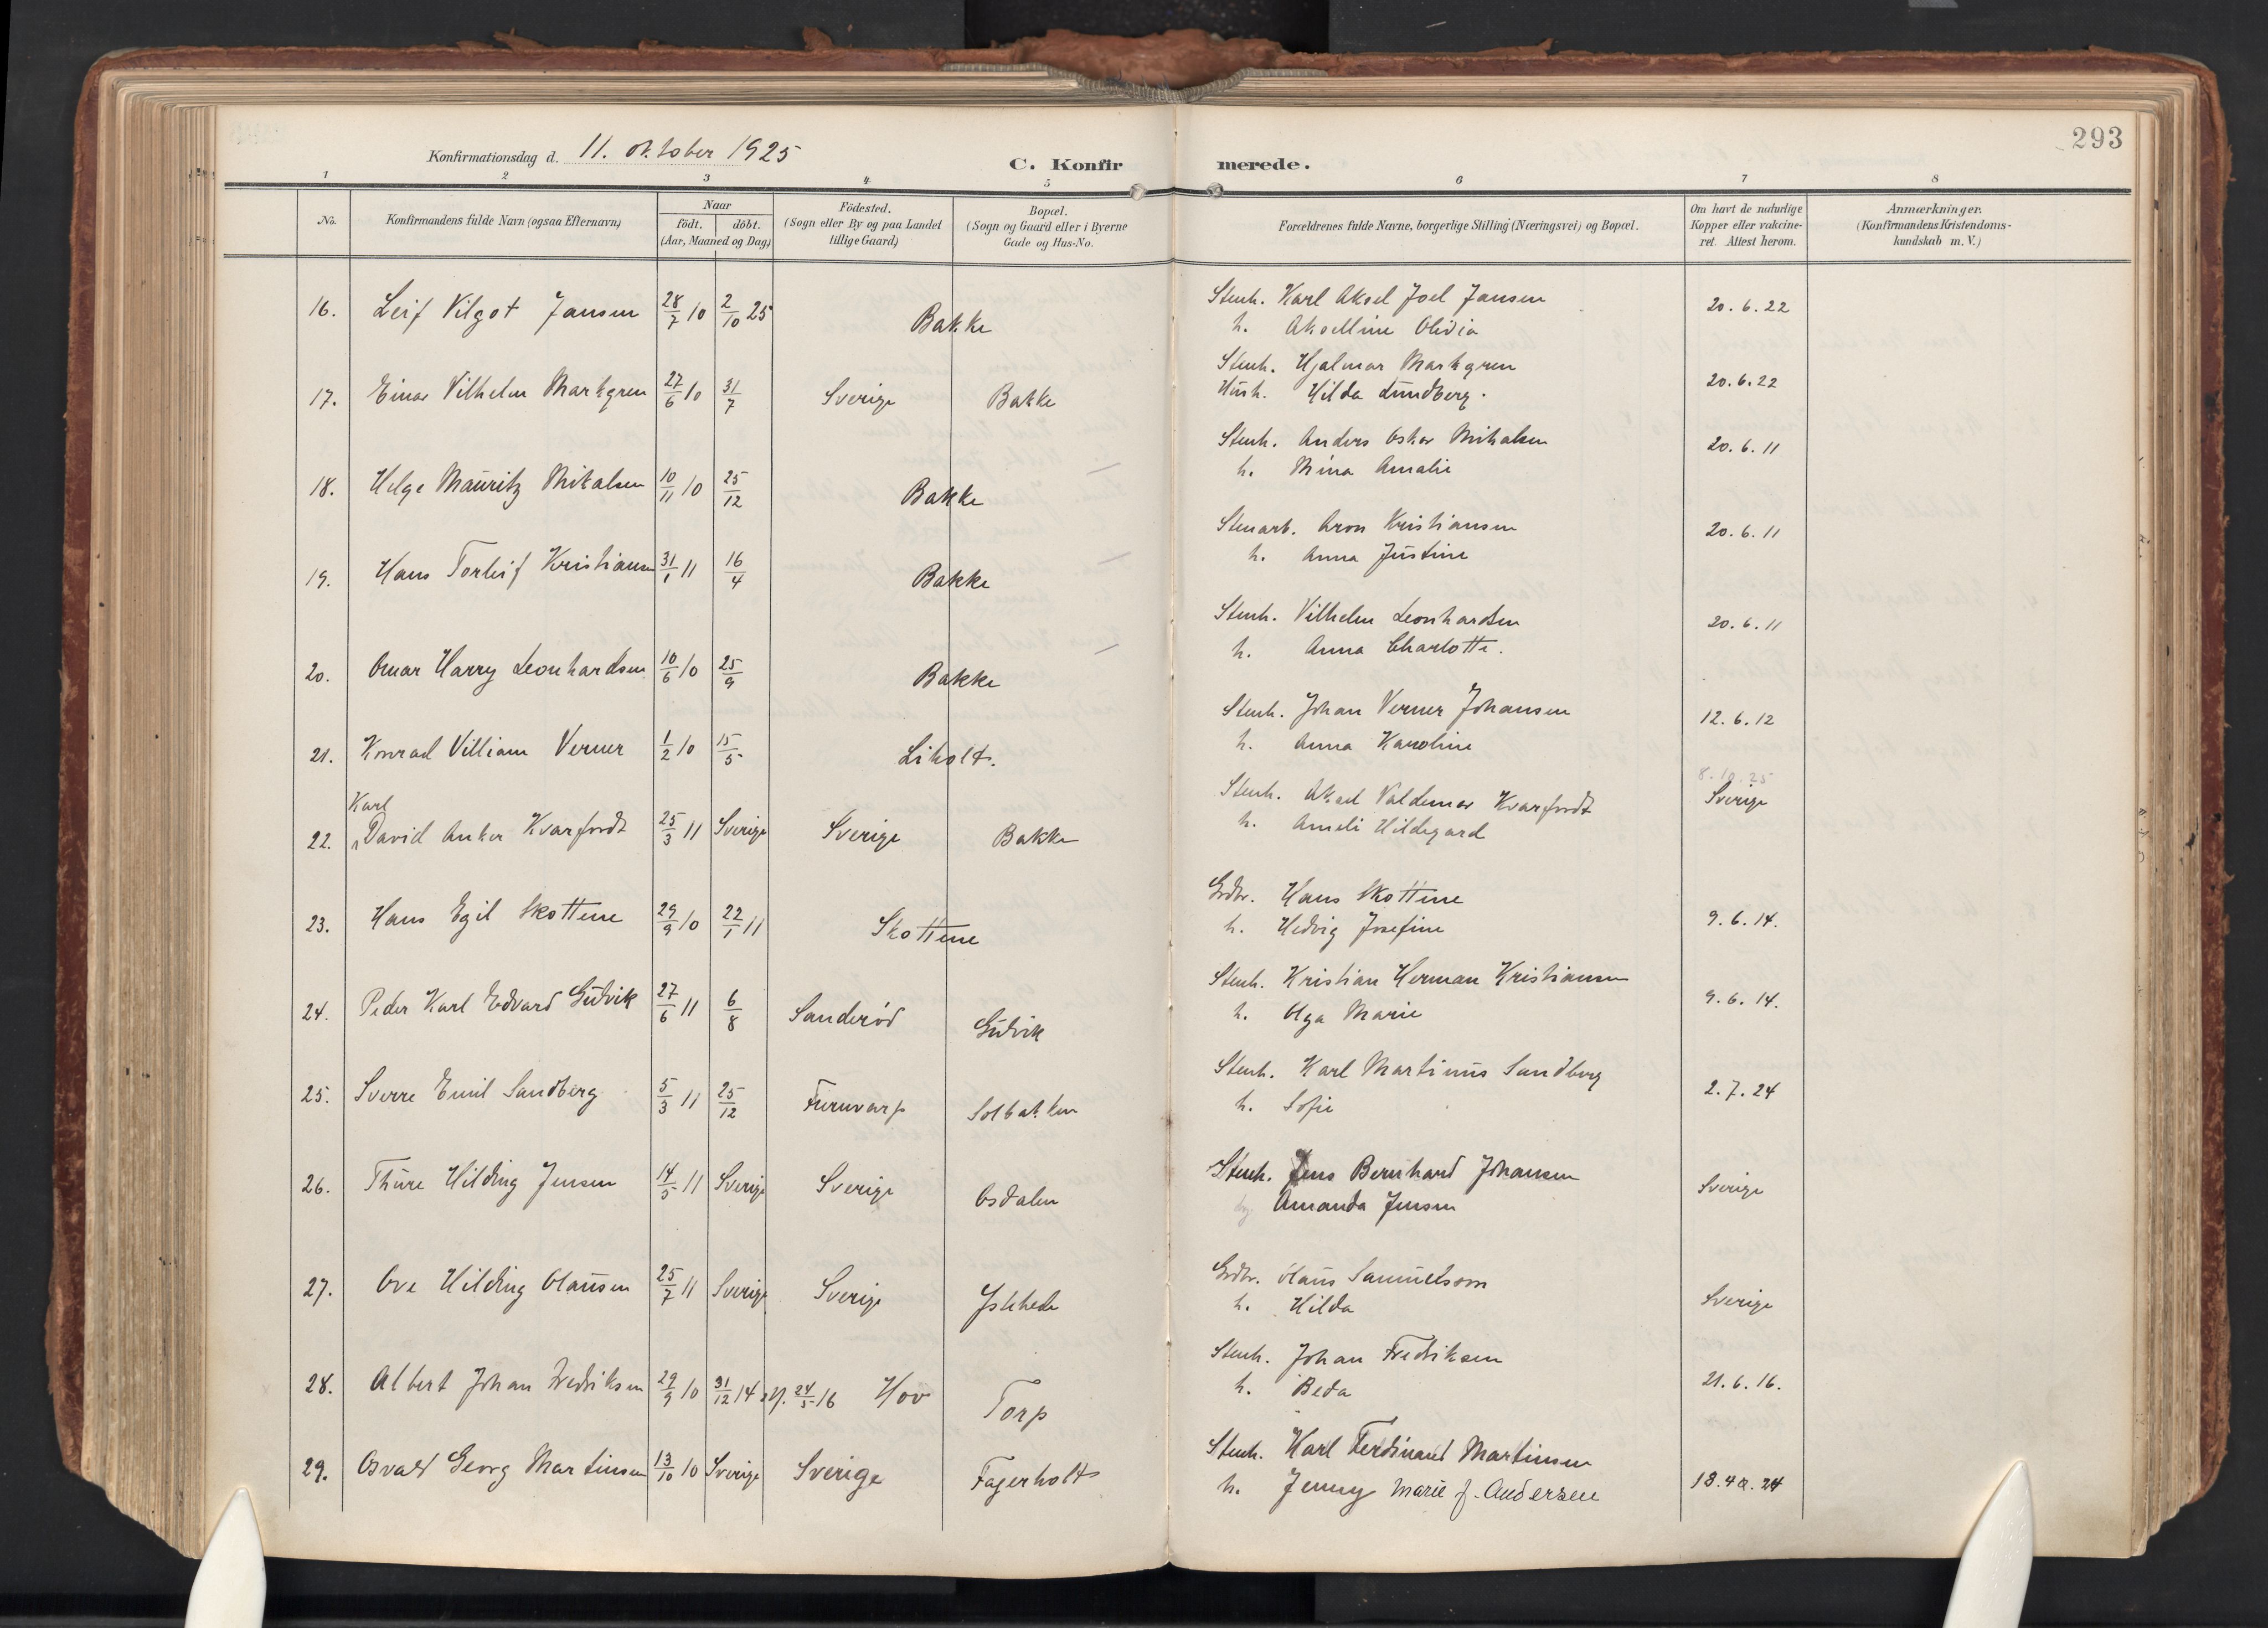 293
Konfirmationsdag d. 11. oktober 1925
C. Konfir merede.
1 2 3 4 5 6 7 8
No.
Konfirmandens fulde Navn (ogsaa Efternavn)
Naar
födt. döbt.
(Aar, Maaned og Dag)
Födested.
(Sogn eller By og paa Landet
tillige Gaard)
Bopæl.
(Sogn og Gaard eller i Byerne
Gade og Hus-No.
Forældrenes fulde Navne, borgerlige Stilling (Næringsvei) og Bopæl.
Om havt de naturlige
Kopper eller vakcine-
ret. Attest herom.
Anmærkninger.
(Konfirmandens Kristendoms-
kundskab m. V.)
16. Leif Vilgot Jansen 28/7 10 2/10 25 Bakke
Stenh. Karl Aksel Joel Jansen
h. Akselline Olivia
20.6.22
17. Einar Vilhelm Markgren 27/6 10 31/7 Sverige Bakke
Stenh. Hjalmar Markgren
Hush. Hilda Lundberg.
20.6.22
18. Helge Mauritz Mikalsen 10/11 10 25/12 Bakke
Stenh. Anders Oskar Mikalsen
h. Mina Amalie
20.6.11
19. Hans Torleif Kristiansen 31/1 11 16/4 Bakke
Stenarb. Aron Kristiansen
h. Anna Justine
20.6.11
20. Omar Harry Leonhardsen 10/6 10 25/9 Bakke
Stenh. Vilhelm Leonhardsen
h. Anna Charlotte.
20.6.11
21. Konrad Villiam Verner 1/2 10 15/5 Liholt.
Stenh. Johan Verner Johansen
h. Anna Karoline
12.6.12
Karl
22. David Anker Kvarfordt 25/3 11 Sverige Sverige Bakke
Stenh. Aksel Valdemar Kvarfordt
h. Ameli Hildegard
8.10.25
Sverige
23. Hans Egil Skottene 29/9 10 22/1 11 Skottene
Grdbr. Hans Skottene
h. Hedvig Josefine
9.6.14.
24. Peder Karl Edvard Gudvik 27/6 11 6/8 Sanderød Gudvik
Stenh. Kristian Herman Kristiansen
h. Olga Marie
9.6.14.
25. Sverre Emil Sandberg 5/3 11 25/12 Furuvarp Solbakken
Stenh. Karl Martinus Sandberg
h. Sofie
2.7.24
26. Thure Hilding Jensen 14/5 11 Sverige Sverige Osdalen
Stenh. Jens Bernhard Johansen
Amanda Jensen
Sverige
27. Ove Hilding Olausen 25/7 11 Sverige Sverige Isthede
Grdbr. Olaus Samuelsson
h. Hilda
Sverige
28. Albert Johan Fredriksen 29/9 10 31/12 14 24/5 16 Hov Torp
Stenh. Johan Fredriksen
h. Beda
21.6.16.
29. Osvald Georg Martinsen 13/10 10 Sverige Sverige Fagerholt
Stenh. Karl Ferdinand Martinsen
h. Jenny Marie f. Andersen